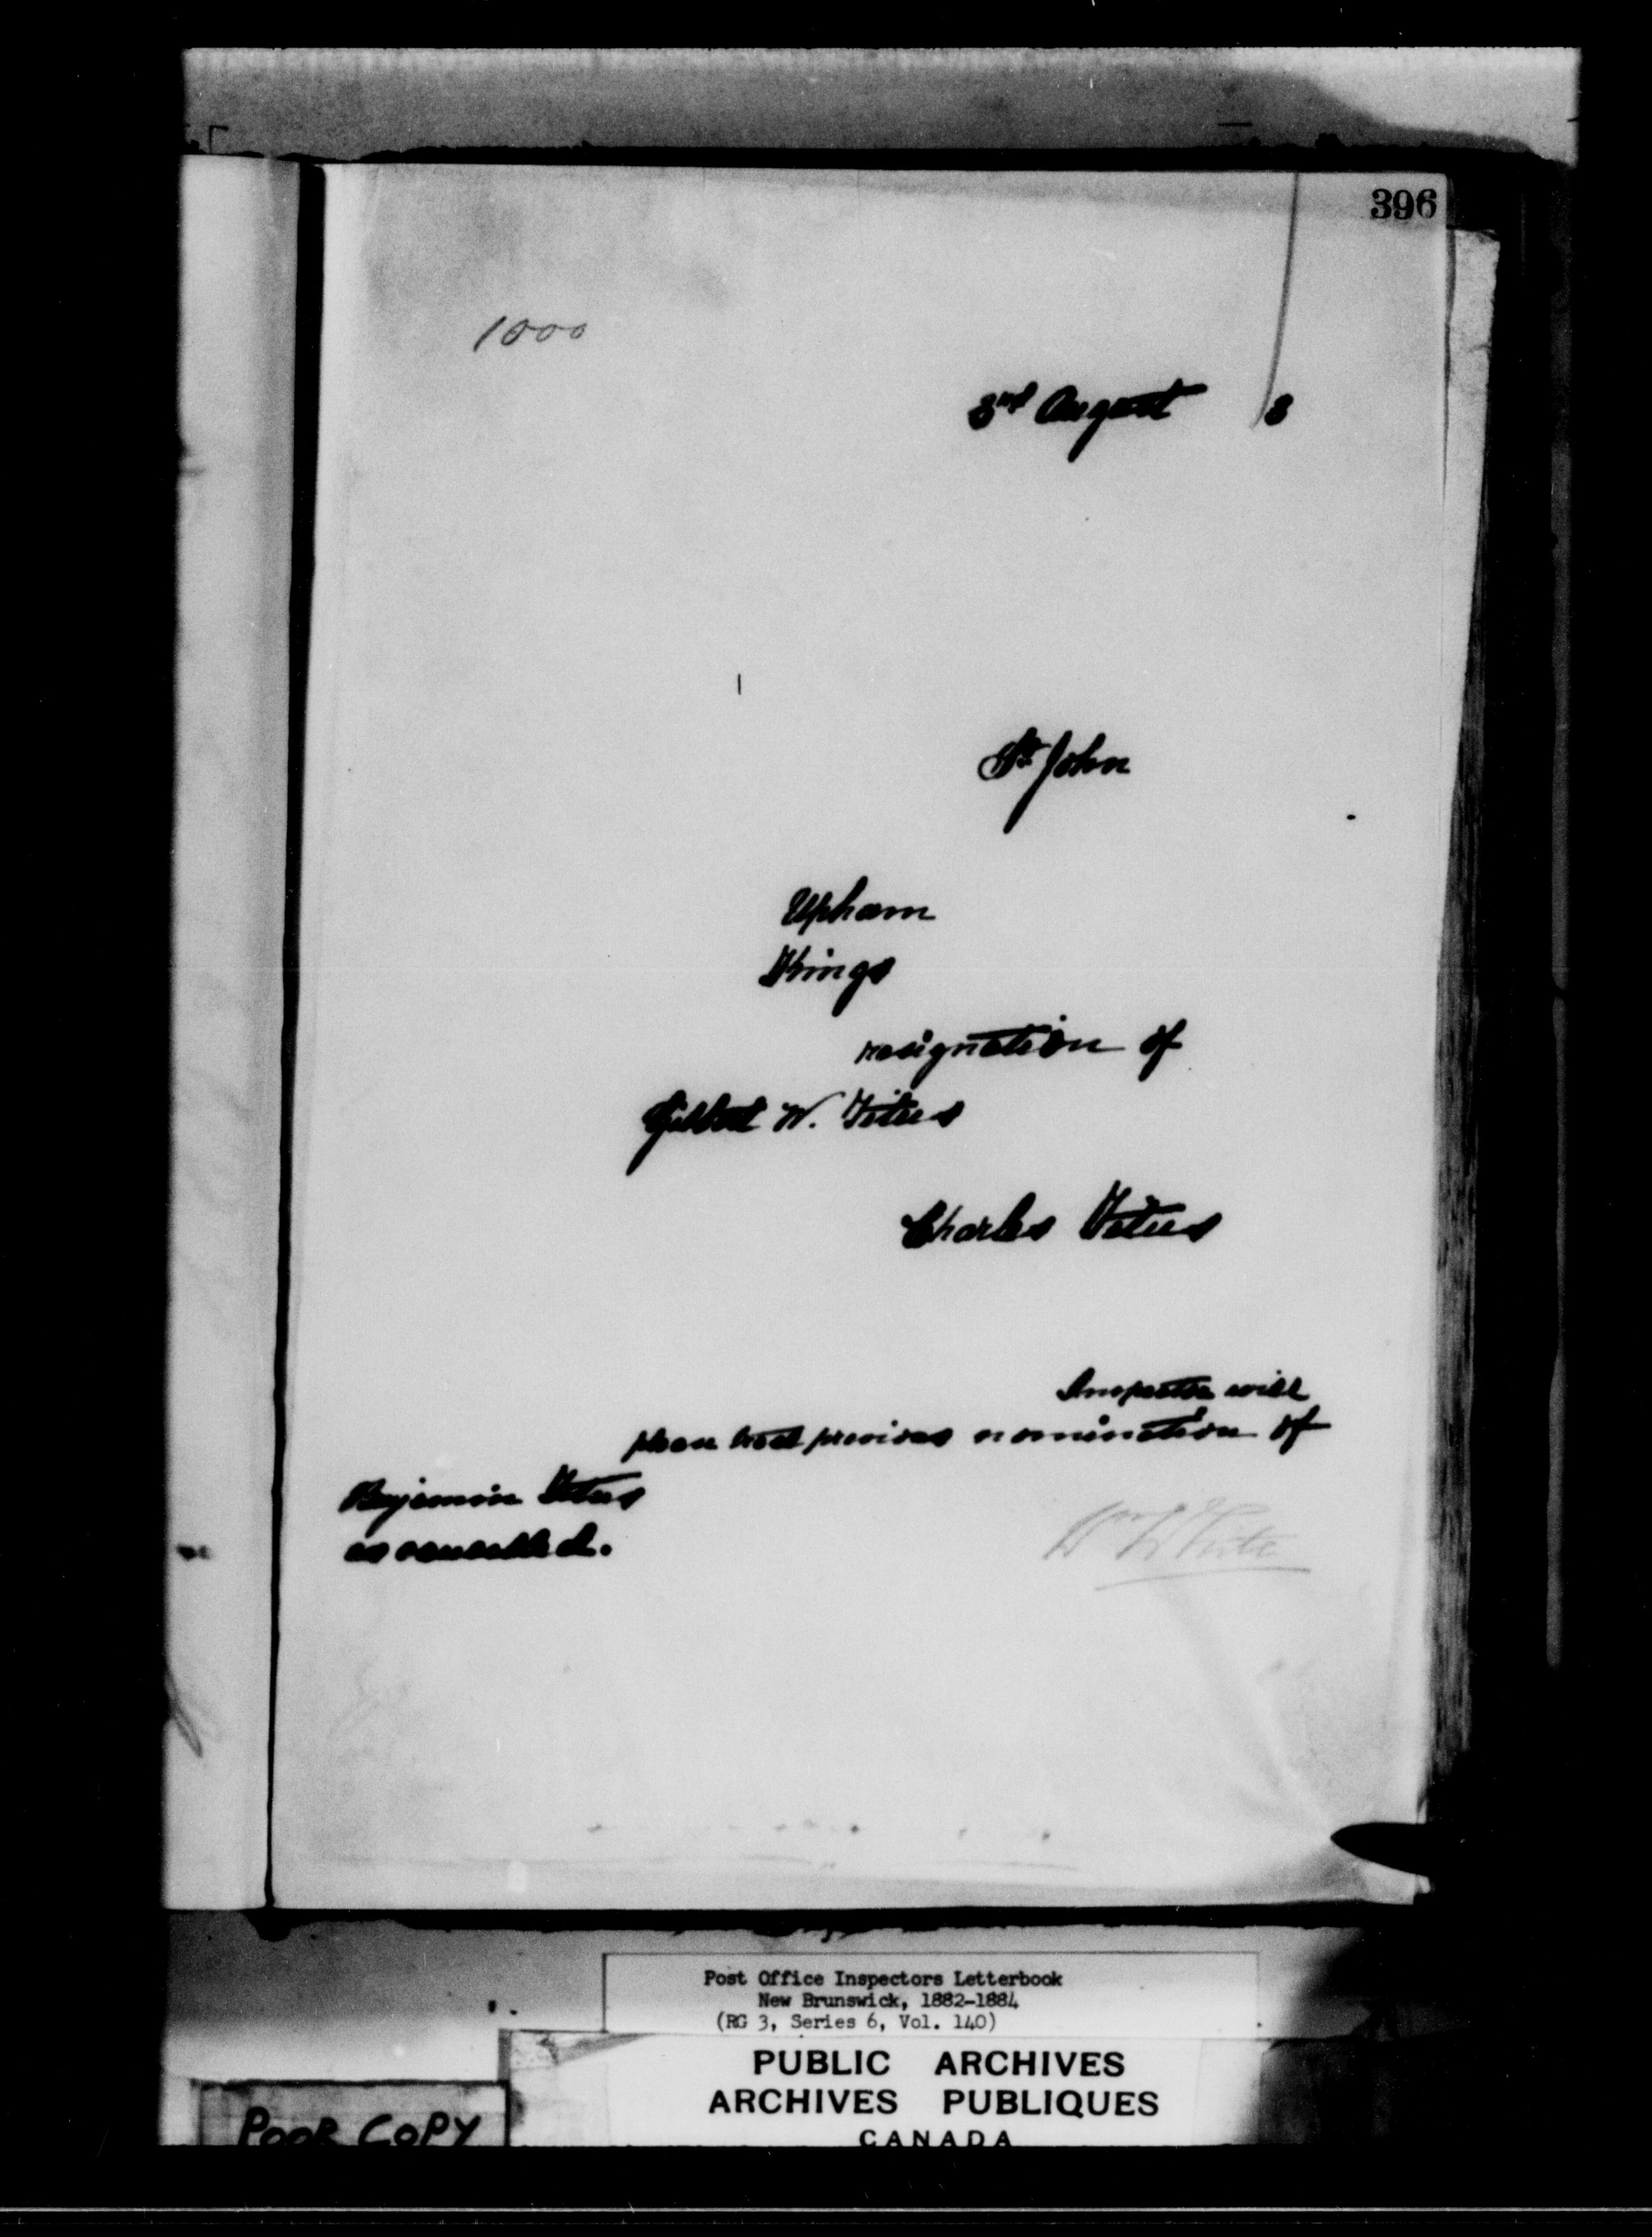 396
1000
3rd August 3
St John
Upham
Kings
resignation of
Gilbert W. Titus
Charles Titus
Inspector will
please treat previous nomination of
Benjamin Titus
as cancelled.
Wm White
Post Office Inspectors Letterbook
New Brunswick, 1882-1884
(RG 3, Series 6, Vol. 140)
PUBLIC ARCHIVES
ARCHIVES PUBLIQUES
CANADA
POOR COPY